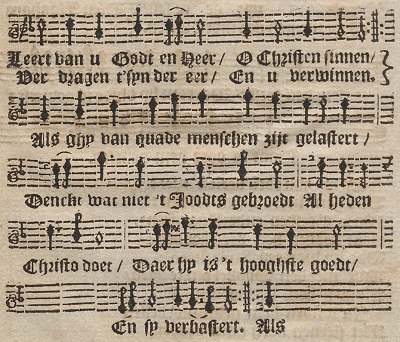 Leert van u Godt en Heer/ O Christen sinnen/
Ver dragen t'syn der eer/ En u verwinnen.
Als ghy van quade menschen zijt gelastert/
Denckt wat niet 't Joodts gebroedt Al heden
Christo doet/ Daer hy is 't hooghste goedt/
En sy verbastert. Als